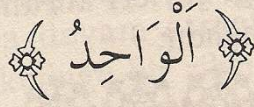 اَلْوَاحِدُ